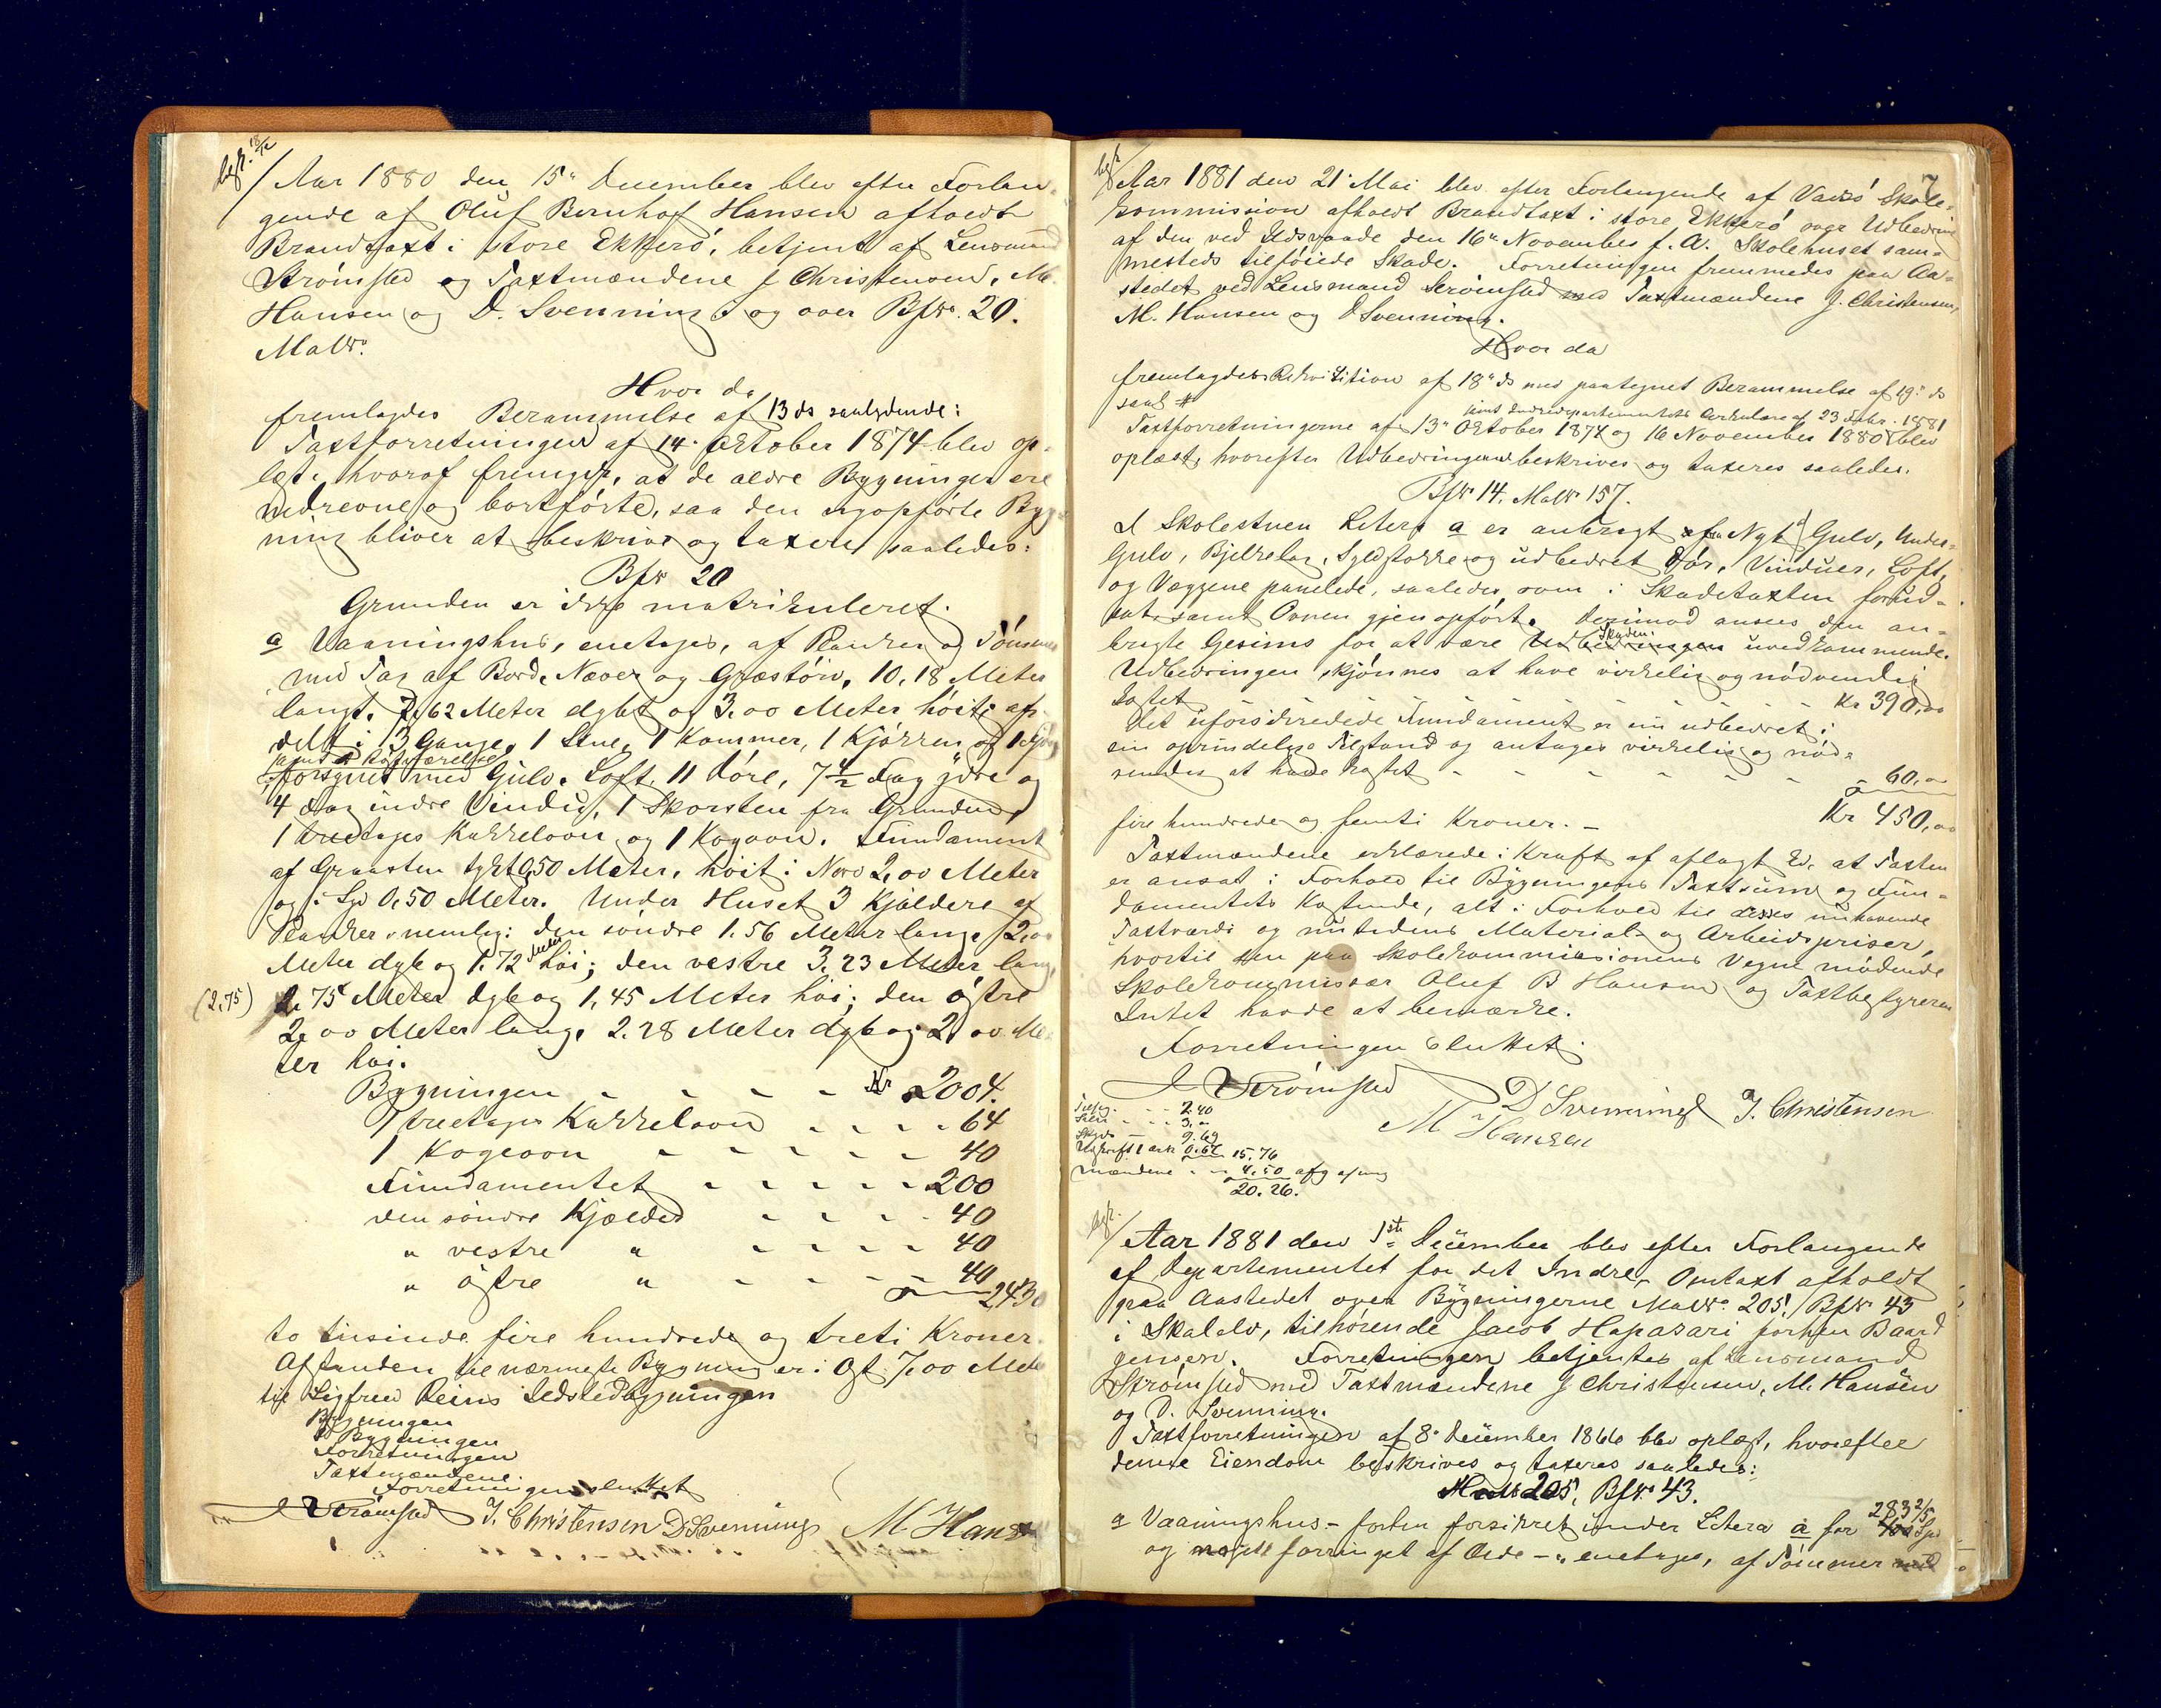 besk. 18/12
Aar 1880 den 15de December blev efter Forlan-
gende af Oluf Bernhof Hansen afholdt
Brandtaxt i store Ekkerö, betjent af Lensmand
Strömsted og Taxtmændene J Christensen, M.
Hansen og D. Svenning og over Bfno. 20.
Matr.
Hvor da
fremlagdes Berammelse af 13 ds saalydende:
Taxtforretningen af 14. Oktober 1874 blev op-
læst, hvoraf fremgik, at de ældre Bygninger ere
nedrevne og bortförte, saa den nyopförte Byg-
ning bliver at beskrive og taxere saaledes:
Bfno 20
Grunden er ikke matrikuleret.
a Vaaningshus, enetages, af Planker og Tömmer
med Tag af Bord, Næver og Græstörv, 10,18 Meter
langt, 7,62 Meter dybt og 3,00 Meter höit; af-
delt i 3 Gange, 1 Stue, 1 Kammer, 1 Kjökken og
forsynet med Gulv, Loft, 11 Döre, 7 1/2 Fag ydre og
4 Fag indre Vindu, 1 Skorsten fra Grunden,
1 treetages Kakkelovn og 1 Kogovn. Fundament
af Graasten tykt 0,50 Meter, höit i Nord 2,00 Meter
og i Syd 0,50 Meter. Under Huset 3 Kjældere af
Planker, nemlig: den söndre 1.56 Meter lang, 2,00
Meter dyb og 1.72 Meter höi; den vestre 3,23 Meter lang,
(2,75) 2,75 Meter dyb og 1,45 Meter höi; den östre
2,00 Meter lang, 2.28 Meter dyb og 2,00 Me-
ter höi.
Bygningen - - - - Kr 2004.
1 treetages Kakkelovn - - - - 64
1 Kogeovn - - - - - 40
Fundamentet - - - - - 200
den söndre Kjælder - - - - 40
" vestre " - - - - 40
" östre " - - - - 40
2430
to tusinde fire hundrede og treti Kroner.
Afstanden til nærmeste Bygning er i Öst 7,00 Meter
til Sigfred Reins Ildstedbygningen
Bygningen
Bygningen
Forretningen
Taxtmændene.
Forretningen sluttet
Strömsted J. Christensen D Svenning M Hansen
7
besk
Aar 1881 den 21. Mai blev efter Forlangende af Vadsö Skole-
kommission afholdt Brandtaxt i store Ekkerö over Udbedring
af den ved Ildsvaade den 16de November f. A. Skolehuset sam-
mesteds tilföiede Skade. Forretningen fremmedes paa Aa-
stedet ved Lensmand Strömsted med Taxtmændene J. Christensen,
M. Hansen og D Svenning.
Hvor da
fremlagdes Rekvisition af 18de ds med paategnet Berammelse af 19de ds
samt
samt Indredepartementets Cirkulære af 23 Febr. 1881
Taxtforretningerne af 13de Oktober 1874 og 16 November 1880 blev
oplæst, hvorefter Udbedringerne beskrives og taxeres saaledes.
Bfno 14. Matr 157.
I Skolestuen Litera a er anbragt Nyt Gulv, Under-
gulv, Bjelkelag, Syldstokke og udbedret Dör, Vinduer, Loft,
og Væggene panelede, saaledes som i Skadetaxten forud-
sat, samt Ovnen gjenopfört. Derimod ansees den an-
bragte Gesims for at være Udbedringen Skaden. uvedkommende.
Udbedringen skjönnes at have virkelig og nödvendig
kostet - - - - - - Kr 390,00
Det uforsikrede Fundament er nu udbedret i
sin oprindelige Tilstand og antages virkelig og nöd-
vendig at have kostet - - - - - - 60,00
Kr 450,00
fire hundrede og femti Kroner. -
Taxtmændene erklærede i Kraft af aflagt Ed, at Taxten
er ansat i Forhold til Bygningens Taxtsum og Fun-
damentets Kostende, alt i Forhold til deres nuhavende
Taxtværdi og nutidens Material- og Arbeidspriser,
hvortil den paa Skolekommissionens Vegne mödende
Skolekommissær Oluf B Hansen og Taxtbestyreren
Intet havde at bemærke.
Forretningen sluttet.
Strömsted D Svenning J. Christensen
M Hansen
2.40
3,00
Skyds - 9.69
Udskrift 1 ark 0.67 15.76
Mændene - - 4.50
20.26.
besk.
Aar 1881 den 1ste December blev efter Forlangende
af Departementet for det Indre, Omtaxt afholdt
paa Aastedet over Bygningerne Matr. 205, Bfno 43
i Skalelv, tilhörende Jacob Hapasari forhen Baard
Jensen. Forretningen betjentes af Lensmand
Strömsted med Taxtmændene J Christensen, M. Hansen
og D. Svenning.
Taxtforretningen af 8. December 1866 blev oplæst, hvorefter
denne Eiendom beskrives og taxeres saaledes:
Matr 205, Bfno 43.
a Vaaningshus - forhen forsikret under Litera a for 283 2/5 Spd
og forringet af Ælde - enetages, af Tömmer med